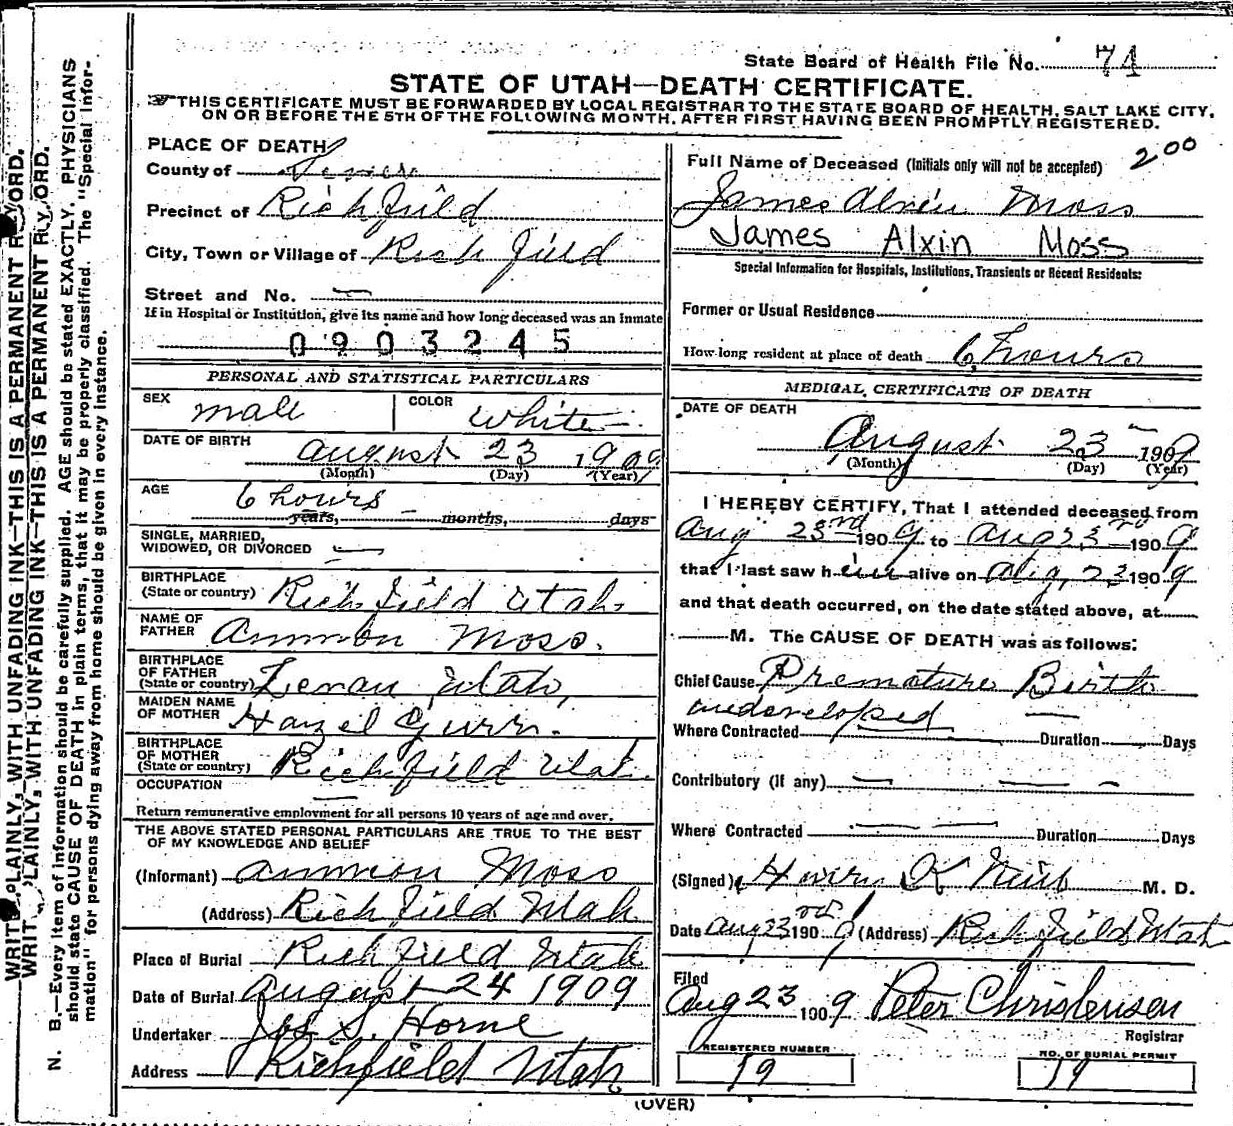 State Board of Health File No. 74
STATE OF UTAH—DEATH CERTIFICATE.
THIS CERTIFICATE MUST BE FORWARDED BY LOCAL REGISTRAR TO THE STATE BOARD OF HEALTH, SALT LAKE CITY,
ON OR BEFORE THE 5TH OF THE FOLLOWING MONTH, AFTER FIRST HAVING BEEN PROMPTLY REGISTERED.
WRITE PLAINLY, WITH UNFADING INK—THIS IS A PERMANENT RECORD.
N. B.—Every item of information should be carefully supplied. AGE should be stated EXACTLY. PHYSICIANS
should state CAUSE OF DEATH in plain terms, that it may be properly classified. The "Special Infor-
mation" for persons dying away from home should be given in every instance.
PLACE OF DEATH
County of Sevier
Precinct of Richfield
City, Town or Village of Richfield
Street and No. —
If in Hospital or Institution, give its name and how long deceased was an inmate
0903245
PERSONAL AND STATISTICAL PARTICULARS
SEX male COLOR white
DATE OF BIRTH august 23 1909
(Month) (Day) (Year)
AGE 6 hours
years, — months, days
SINGLE, MARRIED,
WIDOWED, OR DIVORCED —
BIRTHPLACE
(State or country) Richfield Utah
NAME OF
FATHER Ammon Moss.
BIRTHPLACE
OF FATHER
(State or country) Levan Utah,
MAIDEN NAME
OF MOTHER Hazel Gurr.
BIRTHPLACE
OF MOTHER
(State or country) Richfield Utah.
OCCUPATION —
Return remunerative employment for all persons 10 years of age and over.
THE ABOVE STATED PERSONAL PARTICULARS ARE TRUE TO THE BEST
OF MY KNOWLEDGE AND BELIEF
(Informant) Ammon Moss
(Address) Richfield Utah
Place of Burial Richfield Utah
Date of Burial August 24 1909
Undertaker Jos S. Horne
Address Richfield Utah
Full Name of Deceased (Initials only will not be accepted) 200
James Alvin Moss
James Alxin Moss
Special Information for Hospitals, Institutions, Transients or Recent Residents:
Former or Usual Residence
How long resident at place of death 6 hours
MEDICAL CERTIFICATE OF DEATH
DATE OF DEATH
August 23 1909
(Month) (Day) (Year)
I HEREBY CERTIFY, That I attended deceased from
Aug 23rd 1909 to Aug 23rd 1909
that I last saw him alive on Aug, 23 1909
and that death occurred, on the date stated above, at
M. The CAUSE OF DEATH was as follows:
Chief Cause Premature Birth
undeveloped —
Where Contracted Duration Days
Contributory (if any) — — —
Where Contracted — — Duration Days
(Signed) K M. D.
Date Aug 23rd 1909 (Address) Richfield Utah
Filed
Aug 23 1909 Peter Christensen
Registrar
REGISTERED NUMBER NO. OF BURIAL PERMIT
19 19
(OVER)